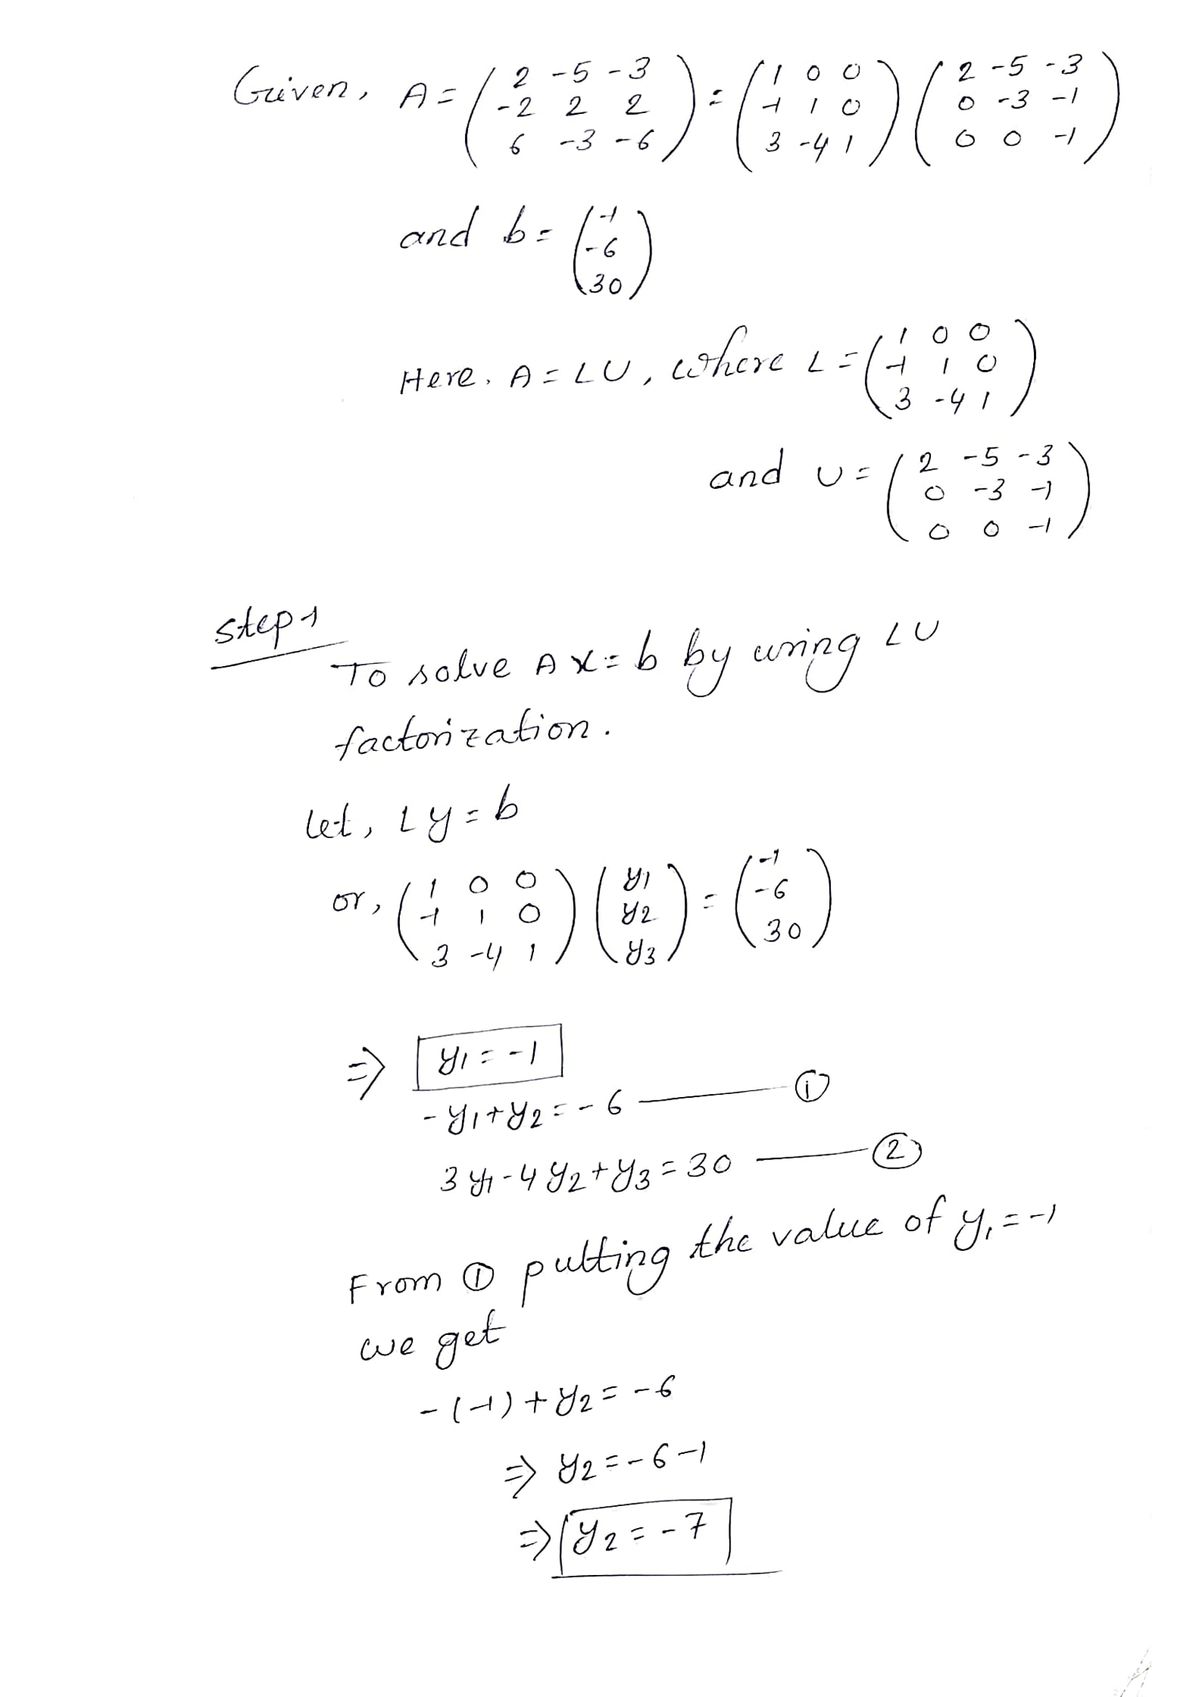 Given, A = ( 2 -5 -3 ; -2 2 2 ; 6 -3 -6 ) = ( 1 0 0 ; -1 1 0 ; 3 -4 1 ) ( 2 -5 -3 ; 0 -3 -1 ; 0 0 -1 )
and b = ( -1 ; -6 ; 30 )
Here, A = LU, where L = ( 1 0 0 ; -1 1 0 ; 3 -4 1 )
and U = ( 2 -5 -3 ; 0 -3 -1 ; 0 0 -1 )
step 1
To solve AX = b by using LU
factorization.
let, Ly = b
or, ( 1 0 0 ; -1 1 0 ; 3 -4 1 ) ( y1 ; y2 ; y3 ) = ( -1 ; -6 ; 30 )
⇒ y1 = -1
-y1 + y2 = -6 —— ①
3y1 - 4y2 + y3 = 30 —— ②
From ① putting the value of y1 = -1
we get
-(-1) + y2 = -6
⇒ y2 = -6 -1
⇒ y2 = -7